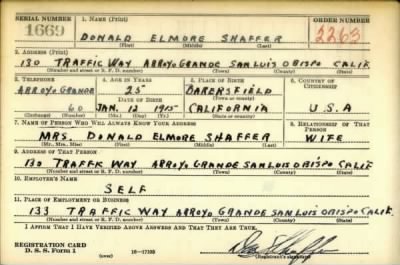 SERIAL NUMBER 1. NAME (Print) ORDER NUMBER
1669 DONALD ELMORE SHAFFER 2263
(First) (Middle) (Last)
2. ADDRESS (Print)
130 TRAFFIC WAY ARROYO GRANDE SAN LUIS OBISPO CALIF.
(Number and street or R. F. D. number) (Town) (County) (State)
3. TELEPHONE 4. AGE IN YEARS 5. PLACE OF BIRTH 6. COUNTRY OF CITIZENSHIP
ARROYO GRANDE 25 BAKERSFIELD
DATE OF BIRTH (Town or county)
60 JAN. 12 1915 CALIFORNIA U.S.A
(Exchange) (Number) (Mo.) (Day) (Yr.) (State or country)
7. NAME OF PERSON WHO WILL ALWAYS KNOW YOUR ADDRESS 8. RELATIONSHIP OF THAT PERSON
MRS. DONALD ELMORE SHAFFER WIFE
(Mr., Mrs., Miss) (First) (Middle) (Last)
9. ADDRESS OF THAT PERSON
130 TRAFFK WAY ARROYO GRANDE SAN LUIS OBISPO CALIF
(Number and street or R. F. D. number) (Town) (County) (State)
10. EMPLOYER'S NAME
SELF
11. PLACE OF EMPLOYMENT OR BUSINESS
133 TRAFFIC WAY ARROYO GRANDE SAN LUIS OBISPO CALIF.
(Number and street or R. F. D. number) (Town) (County) (State)
I AFFIRM THAT I HAVE VERIFIED ABOVE ANSWERS AND THAT THEY ARE TRUE.
REGISTRATION CARD
D. S. S. Form 1 16-17105 (Registrant's signature)